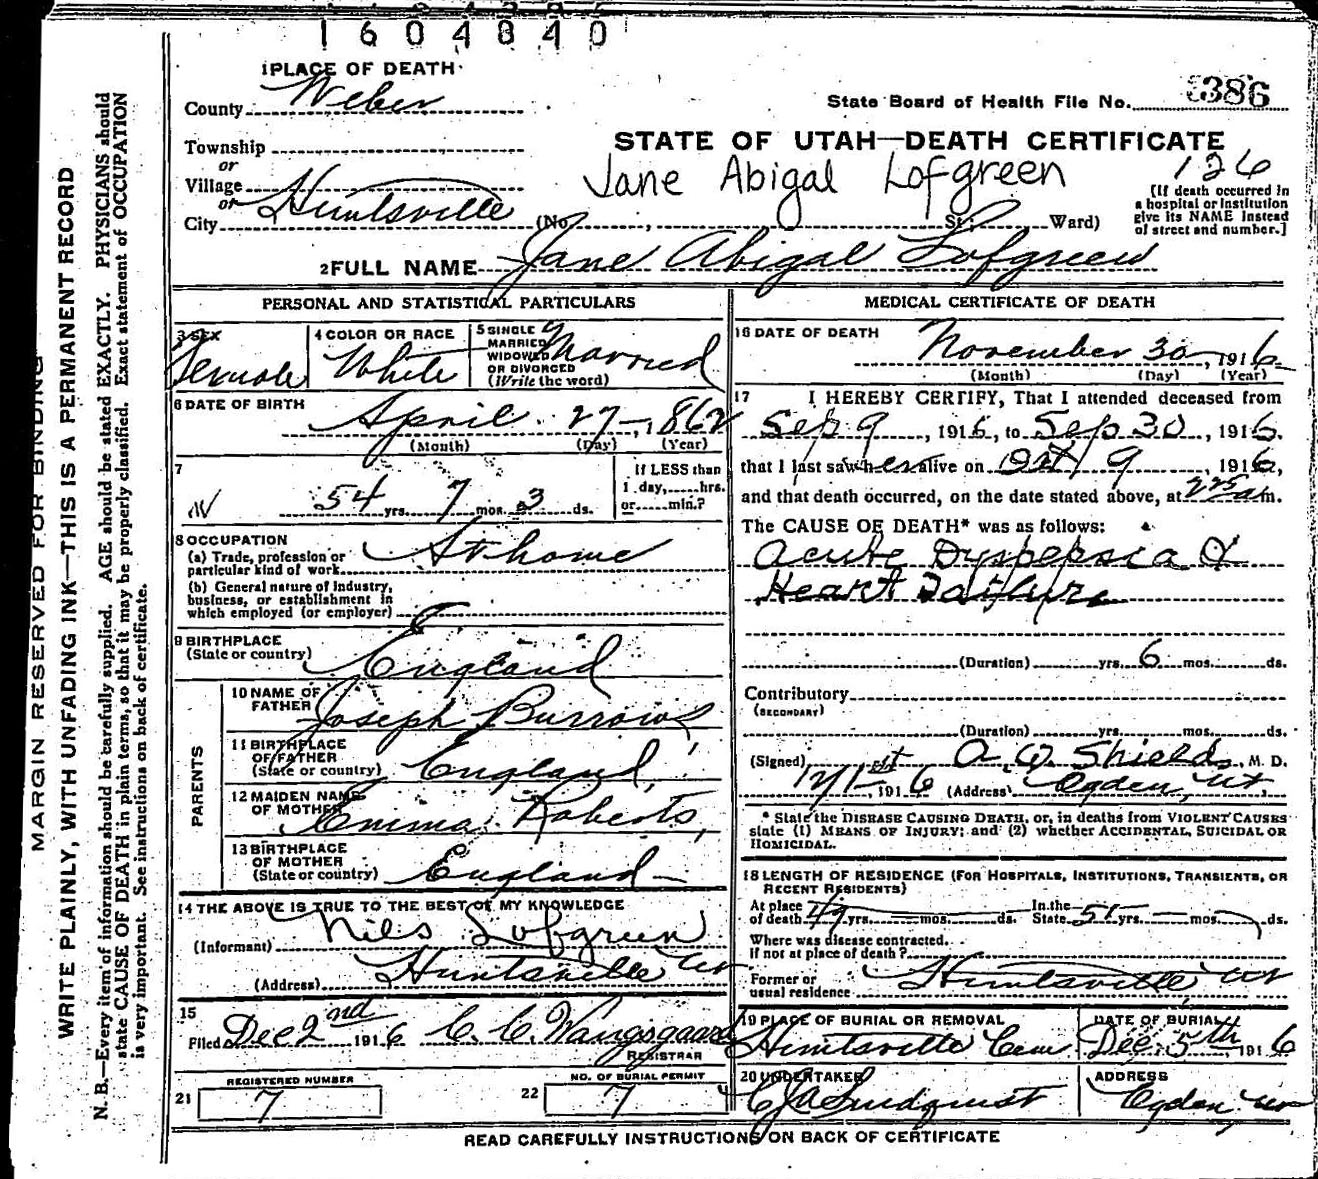 1604840
1 PLACE OF DEATH
County Weber
State Board of Health File No. 386
STATE OF UTAH—DEATH CERTIFICATE
Township
or
Village
or
City Huntsville (No. , St.; Ward)
Jane Abigal Lofgreen
126
[If death occurred in
a hospital or institution
give its NAME instead
of street and number.]
2 FULL NAME Jane Abigal Lofgreen
PERSONAL AND STATISTICAL PARTICULARS
3 SEX
Female
4 COLOR OR RACE
White
5 SINGLE
MARRIED
WIDOWED
OR DIVORCED
(Write the word)
Married
6 DATE OF BIRTH
April 27-, 1862
(Month) (Day) (Year)
7
54 yrs. 7 mos. 3 ds.
If LESS than
1 day, hrs.
or min.?
8 OCCUPATION
(a) Trade, profession or
particular kind of work At home
(b) General nature of Industry,
business, or establishment in
which employed (or employer)
9 BIRTHPLACE
(State or country) England
PARENTS
10 NAME OF
FATHER Joseph Burrows
11 BIRTHPLACE
OF FATHER
(State or country) England
12 MAIDEN NAME
OF MOTHER Emma Roberts,
13 BIRTHPLACE
OF MOTHER
(State or country) England
14 THE ABOVE IS TRUE TO THE BEST OF MY KNOWLEDGE
(Informant) Nils Lofgreen
(Address) Huntsville Ut
15
Filed Dec 2nd 1916 C. C. Wangsgaard
REGISTRAR
REGISTERED NUMBER
21 7
NO. OF BURIAL PERMIT
22 7
MEDICAL CERTIFICATE OF DEATH
16 DATE OF DEATH
November 30, 1916
(Month) (Day) (Year)
17 I HEREBY CERTIFY, That I attended deceased from
Sep 9, 1916, to Sep 30, 1916.
that I last saw her alive on 9, 1916,
and that death occurred, on the date stated above, at 225 a m.
The CAUSE OF DEATH* was as follows:
Acute Dyspepsia &
Heart Failure
(Duration) yrs. 6 mos. ds.
Contributory
(SECONDARY)
(Duration) yrs. mos. ds.
(Signed) A. W. Shields, M. D.
12/1st, 1916 (Address) Ogden, Ut,
* State the DISEASE CAUSING DEATH, or, in deaths from VIOLENT CAUSES
state (1) MEANS OF INJURY; and (2) whether ACCIDENTAL, SUICIDAL OR
HOMICIDAL.
18 LENGTH OF RESIDENCE (FOR HOSPITALS, INSTITUTIONS, TRANSIENTS, OR
RECENT RESIDENTS)
At place
of death 49 yrs. mos. ds.
In the
State 51 yrs. mos. ds.
Where was disease contracted
if not at place of death?
Former or
usual residence Huntsville, Ut
19 PLACE OF BURIAL OR REMOVAL
Huntsville Cem
DATE OF BURIAL
Dec. 5th, 1916
20 UNDERTAKER
C J A Lindquist
ADDRESS
Ogden Ut
READ CAREFULLY INSTRUCTIONS ON BACK OF CERTIFICATE
MARGIN RESERVED FOR BINDING
WRITE PLAINLY, WITH UNFADING INK—THIS IS A PERMANENT RECORD
N. B.—Every item of information should be carefully supplied. AGE should be stated EXACTLY. PHYSICIANS should
state CAUSE OF DEATH in plain terms, so that it may be properly classified. Exact statement of OCCUPATION
is very important. See instructions on back of certificate.